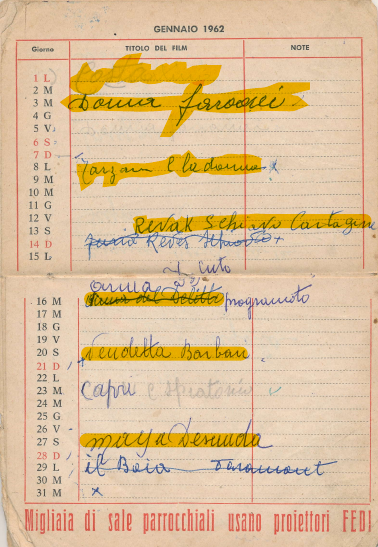 GENNAIO 1962
Giorno TITOLO DEL FILM NOTE
1 L
2 M
3 M Donna faraoni
4 G
5 V
6 S
7 D
8 L Tarzan e la donna x
9 M
10 M
11 G
12 V
13 S Revak Schiavo Cartagine
14 D Reves +
15 L
arma
16 M del Delitto programmato
17 M
18 G
19 V
20 S Vendetta Barbari
21 D
22 L
23 M Capri e
24 M
25 G
26 V
27 S maya Desnuda
28 D
29 L il Boia
30 M
31 M x
Migliaia di sale parrocchiali usano proiettori FEDI